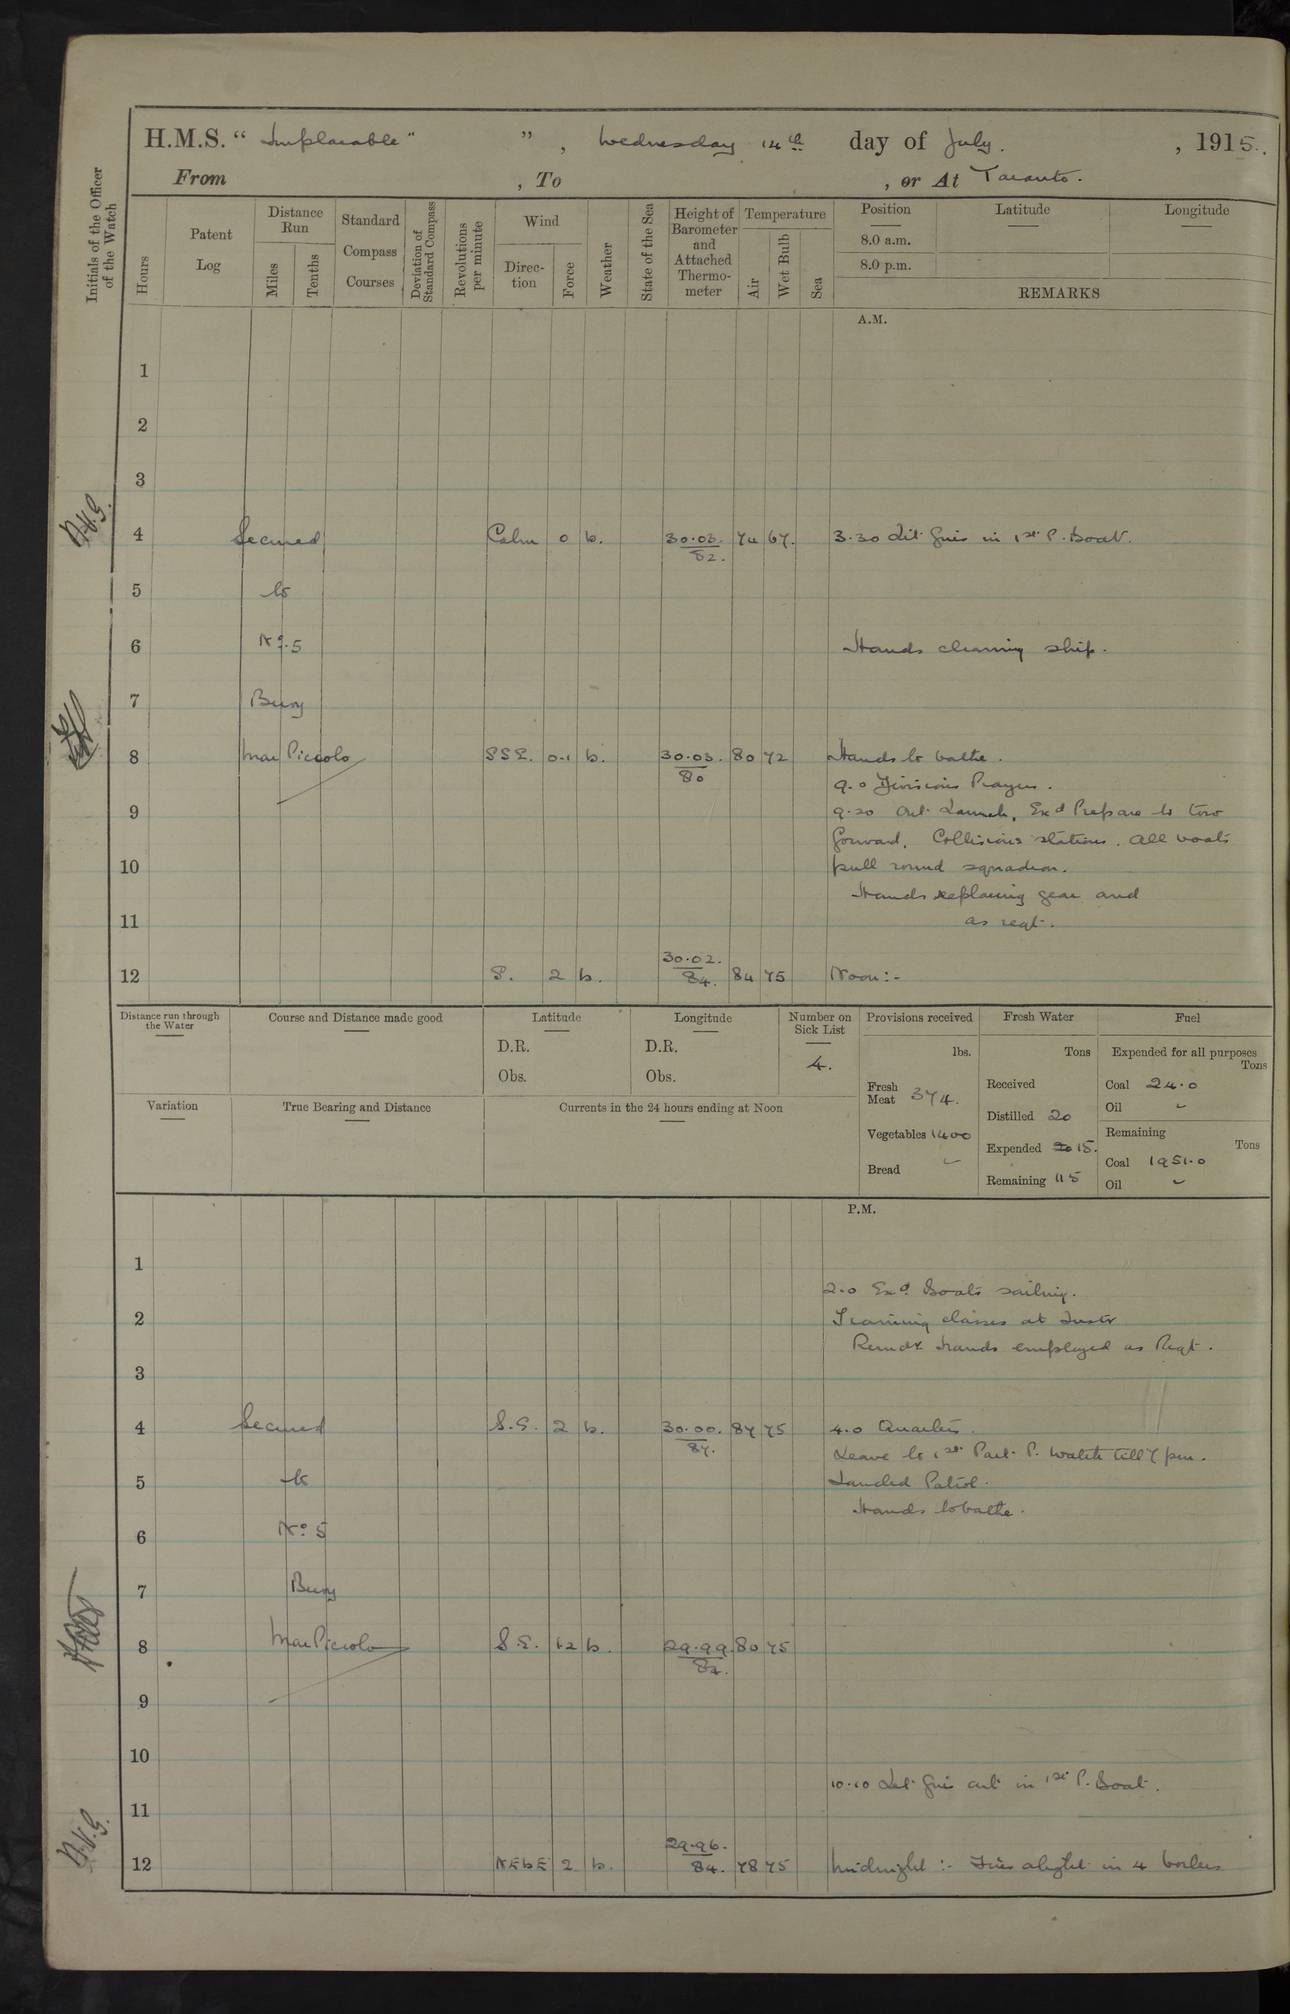 H.M.S. “ Implacable ” ”, Wednesday 14th day of July. , 1915.
From , To , or At Taranto.
Initials of the Officer of the Watch
Hours
Patent Log
Distance Run
Miles
Tenths
Standard Compass Courses
Deviation of Standard Compass
Revolutions per minute
Wind
Direction
Force
Weather
State of the Sea
Height of Barometer and Attached Thermometer
Temperature
Air
Wet Bulb
Sea
Position
8.0 a.m.
8.0 p.m.
Latitude
Longitude
REMARKS
A.M.
1
2
3
4 Secured Calm 0 b. 30.03. 82. 74 67. 3.30 Lit fires in 1st P. Boat.
5 to
6 No. 5 Hands cleaning ship.
7 Buoy
8 Mar Piccolo SSE. 0.1 b. 30.03. 80 80 72 Hands to bathe.
9.0 Divisions Prayers.
9 9.20 Out Launch, Exd Prepare to tow
forward. Collision stations. All boats
10 pull round squadron.
Hands replacing gear and
11 as reqt.
12 S. 2 b. 30.02. 84. 84 75 Noon:-
Distance run through the Water
Course and Distance made good
Latitude
D.R.
Obs.
Longitude
D.R.
Obs.
Number on Sick List
4.
Provisions received
lbs.
Fresh Meat 374.
Vegetables 1400
Bread
Fresh Water
Tons
Received
Distilled 20
Expended 20 15.
Remaining 115
Fuel
Expended for all purposes
Tons
Coal 24.0
Oil
Remaining
Tons
Coal 1951.0
Oil
Variation
True Bearing and Distance
Currents in the 24 hours ending at Noon
P.M.
1
2.0 Exd. Boats sailing.
2 Training classes at Instr
Remdr hands employed as Reqt.
3
4 Secured S.E. 2 b. 30.00. 87. 87 75 4.0 Quarters.
Leave to 1st Part P. Watch till 7 pm.
5 to Landed Patrol.
Hands to bathe.
6 No 5
7 Buoy
8 Mar Piccolo S.E. 1.2 b. 29.99. 80 75
9
10
10.10 Let fires out in 1st P. Boat.
11
12 NEbE 2 b. 29.96. 84. 78 75 Midnight:- Fires alight in 4 boilers